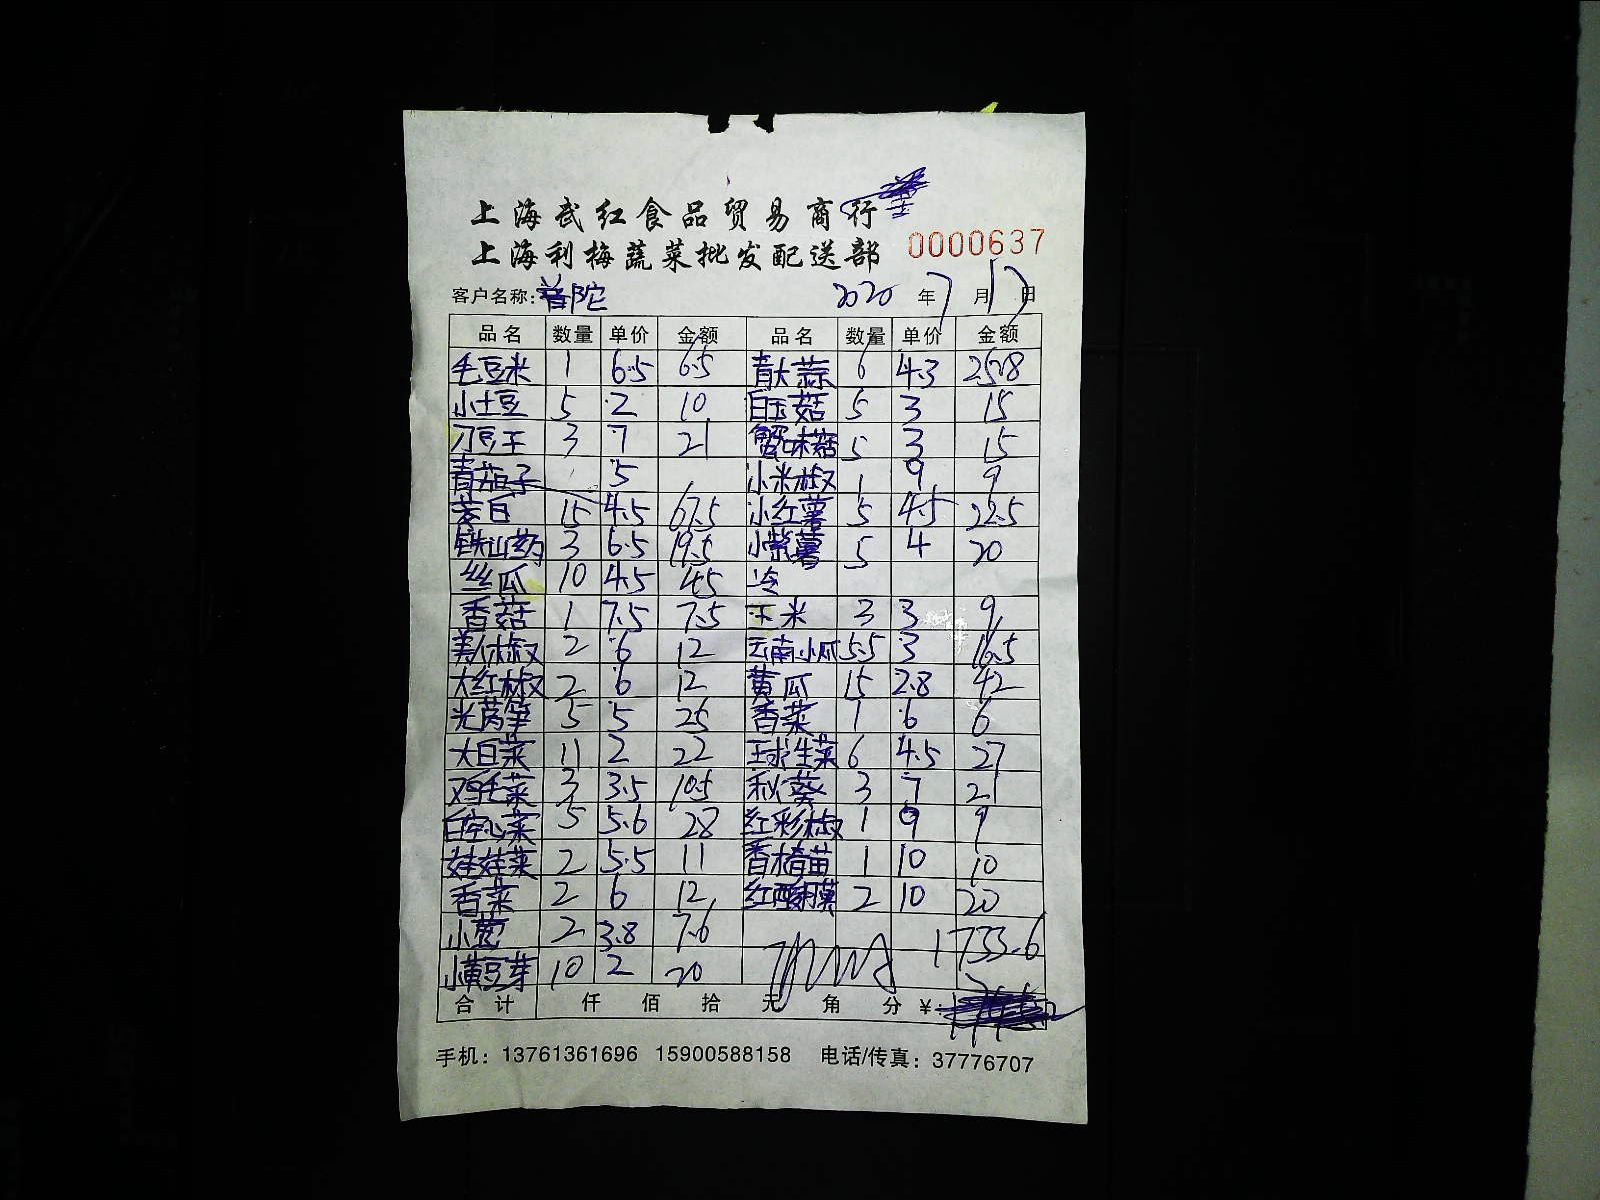 上海武红食品贸易商行
上海利梅蔬菜批发配送部 0000637
客户名称:普陀 2020年7月17日
品名 数量 单价 金额 品名 数量 单价 金额
毛豆米 1 6.5 6.5 青大蒜 6 4.3 25.8
小土豆 5 2 10 白玉菇 5 3 15
刀豆王 3 7 21 蟹味菇 5 3 15
青茄子 5 小米椒 1 9 9
茭白 15 4.5 67.5 小红薯 5 4.5 22.5
铁山药 3 6.5 19.5 小紫薯 5 4 20
丝瓜 10 4.5 45 冷
香菇 1 7.5 7.5 玉米 3 3 9
美人椒 2 6 12 云南小瓜 5.5 3 16.5
大红椒 2 6 12 黄瓜 15 2.8 42
光莴笋 5 5 25 香菜 1 6 6
大白菜 11 2 22 球生菜 6 4.5 27
鸡毛菜 3 3.5 10.5 秋葵 3 7 21
白空心菜 5 5.6 28 红彩椒 1 9 9
娃娃菜 2 5.5 11 香椿苗 1 10 10
香菜 2 6 12 红酸膜 2 10 20
小葱 2 3.8 7.6 1733.6
小黄豆芽 10 2 20
合计 仟 佰 拾 元 角 分 ¥:
手机:13761361696 15900588158 电话/传真:37776707